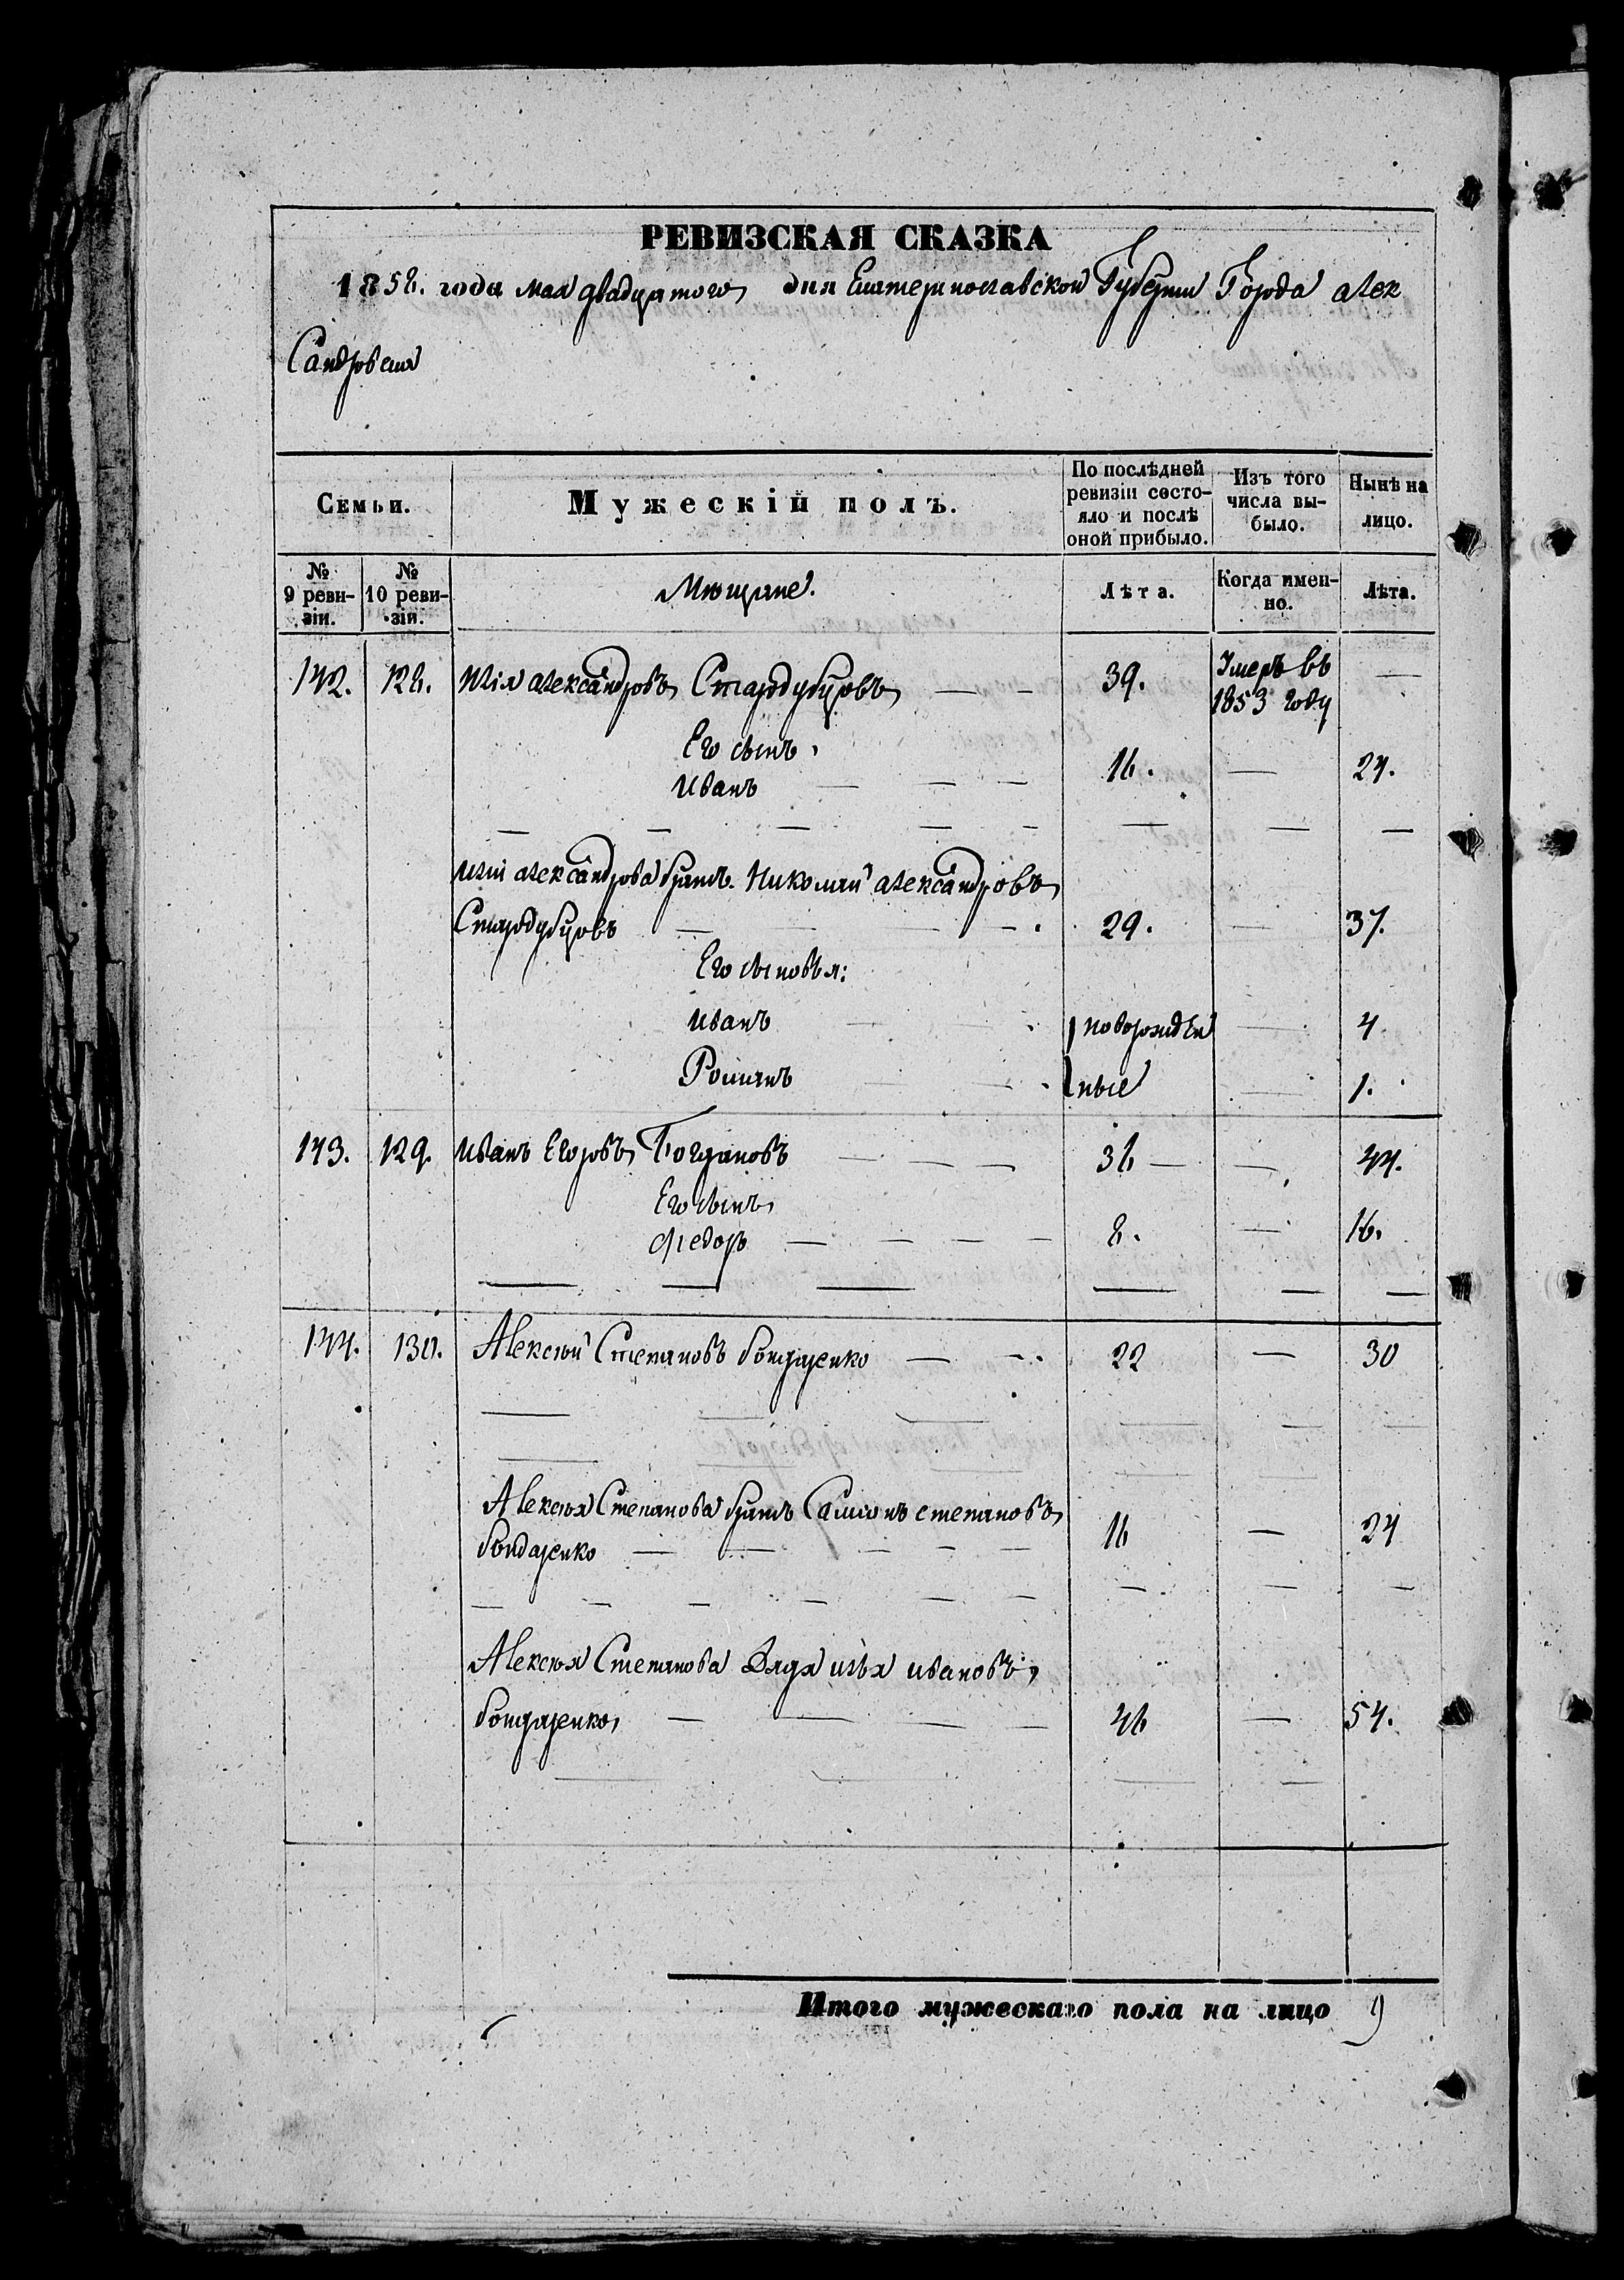 РЕВИЗСКАЯ СКАЗКА
1858. года мая двадцатого дня Екатеринославской Губерніи Города алек
Сандровска
Семьи.
Мужескій полъ.
По послѣдней ревизіи состо-
яло и послѣ
оной прибыло.
Изъ того
числа вы-
было.
Нынѣ на
лицо.
№ 9 реви-
зіи.
№ 10 реви-
зіи.
Мещане.
Лѣта.
Когда имен-
но.
Лѣта.
142. 128. Илія александровъ Стародубцовъ 39. Умеръ въ —
1853 году
Его сынъ,
Иванъ 16. — 24.
Иліи александрова братъ. Николай александровъ
Стародубцовъ 29. — 37.
Его сыновья:
Иванъ новорожден — 4
Романъ ные — 1.
143. 129. Иванъ Егоровъ Богдановъ 36 — — 44.
Его сынъ,
Федоръ 8. — 16.
144. 130. Алексѣй Степановъ бондаренко 22 — 30
Алексѣя Степанова братъ Самсонъ степановъ
бондаренко 16 — 24
Алексѣя Степанова Дядя илья ивановъ,
бондаренко, 46 — 54.
Итого мужескаго пола на лицо 9